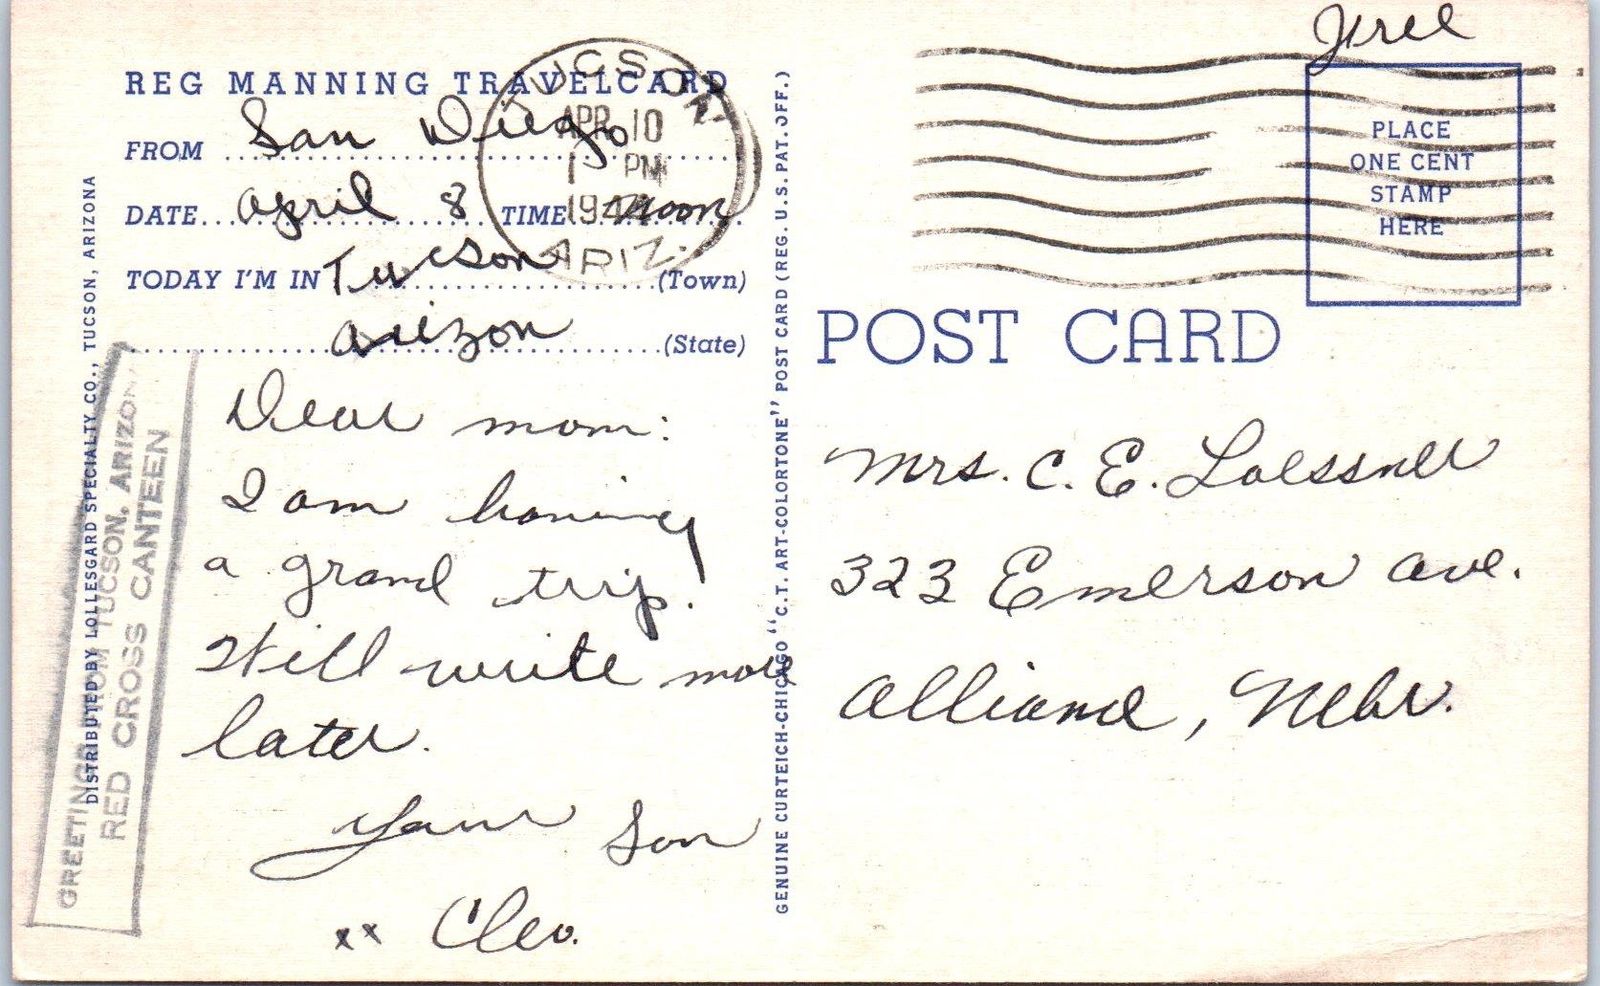 REG MANNING TRAVELCARD
FROM San Diego
DATE April 8 TIME Noon
TODAY I'M IN Tucson (Town)
Arizon (State)
Dear mom:
I am having
a grand trip!
Will write more
later.
Your Son
xx Cleo.
TUCSON
APR 10
1 PM
ARIZ.
GREETINGS FROM TUCSON, ARIZONA
RED CROSS CANTEEN
DISTRIBUTED BY LOLLESGARD SPECIALTY CO., TUCSON, ARIZONA
GENUINE CURTEICH-CHICAGO "C.T. ART-COLORTONE" POST CARD (REG. U.S. PAT. OFF.)
Free
PLACE
ONE CENT
STAMP
HERE
POST CARD
Mrs. C. E. Loessner
323 Emerson Ave.
Alliance, Nebr.